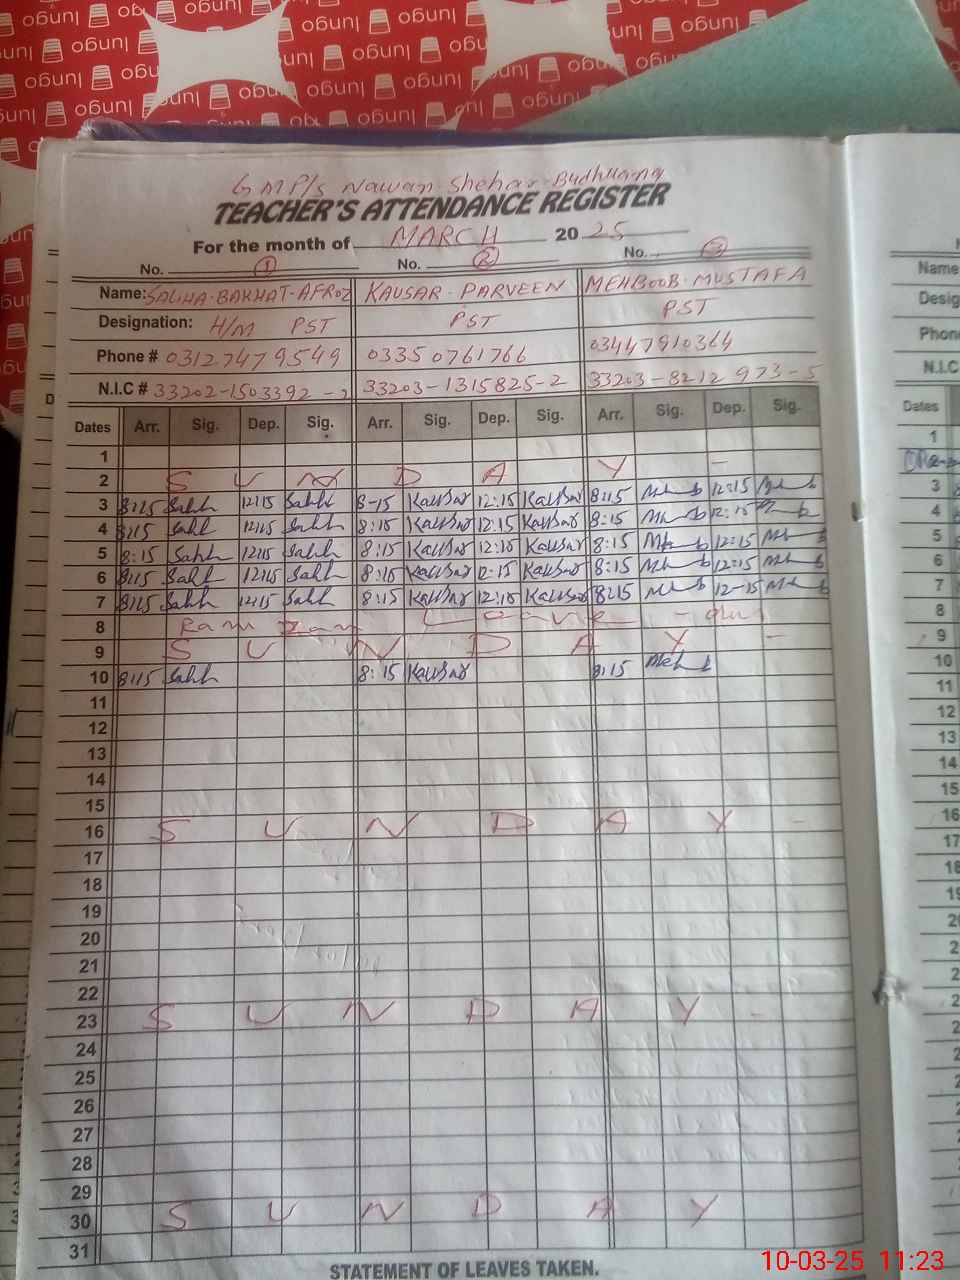 lungo
GMP/s Nawan Shehar Budhuana
TEACHER'S ATTENDANCE REGISTER
For the month of MARCH 20 25
No. 1 No. 2 No. 3
Name: SALIHA-BAKHAT-AFROZ KAUSAR-PARVEEN MEHBOOB-MUSTAFA
Designation: H/M PST PST PST
Phone # 03127479549 03350761766 03447910364
N.I.C # 33202-1503392-2 33203-1315825-2 33203-8212973-5
Dates Arr. Sig. Dep. Sig. Arr. Sig. Dep. Sig. Arr. Sig. Dep. Sig.
1
2 S U N D A Y -
3 8:15 12:15 8-15 Kausar 12:15 Kausar 8:15 12:15
4 8:15 12:15 8:15 Kausar 12:15 Kausar 8:15 12:15
5 8:15 12:15 8:15 Kausar 12:15 Kausar 8:15 12:15
6 8:15 12:15 8:15 Kausar 12:15 Kausar 8:15 12:15
7 8:15 12:15 8:15 Kausar 12:15 Kausar 8:15 12-15
8 Ramzan
9 S U N D A Y -
10 8:15 8:15 Kausar 8:15
11
12
13
14
15
16 S U N D A Y -
17
18
19
20
21
22
23 S U N D A Y -
24
25
26
27
28
29
30 S U N D A Y
31
STATEMENT OF LEAVES TAKEN.
Name
Desig
Phone
N.I.C
Dates
1
3
4
5
6
7
8
9
10
11
12
13
14
15
16
17
18
19
10-03-25 11:23